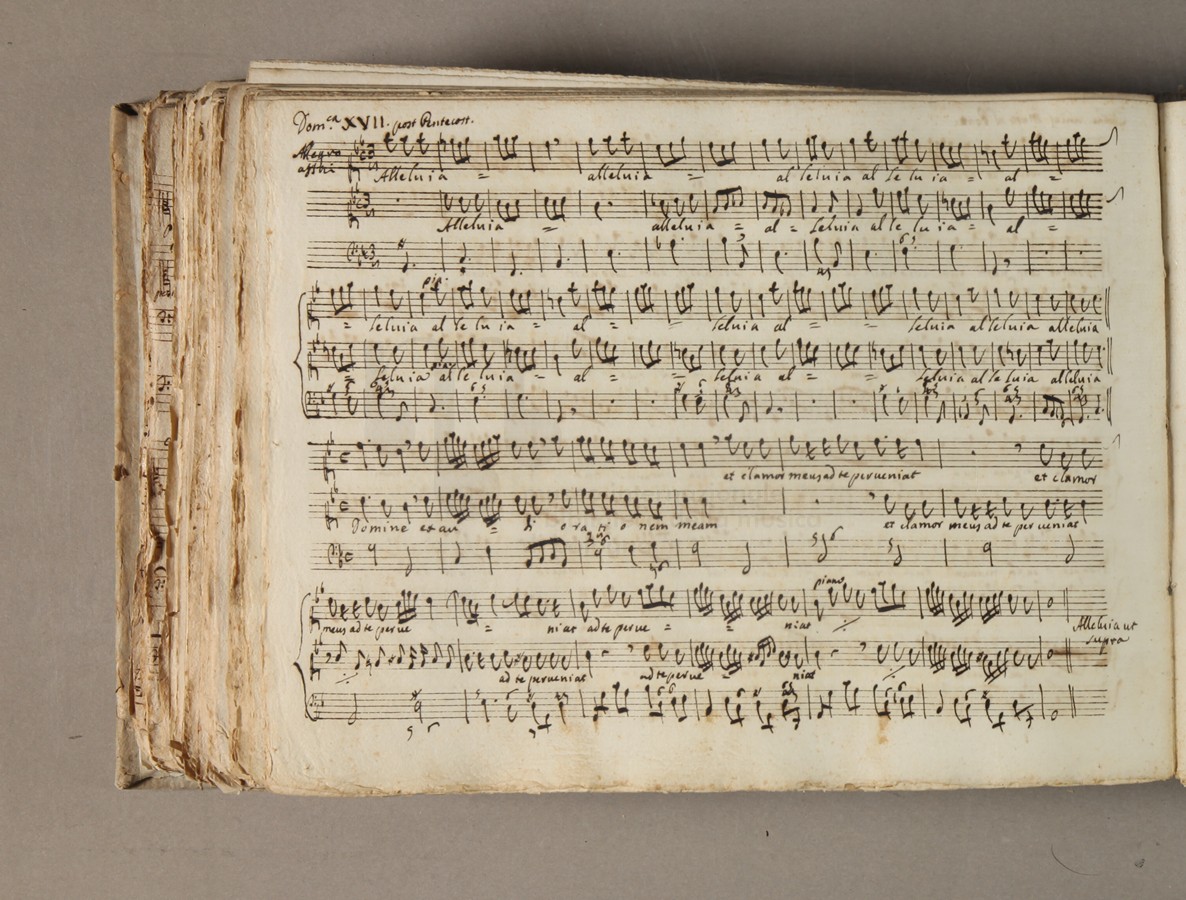 Dom.ca XVII. post Pentecost.
Allegro
Alleluia = alleluia = al leluia al le lu ia = al =
Alleluia = alleluia = al = leluia al le lu ia = al =
pia:
= leluia al le lu ia = al = = leluia al = = leluia alleluia alleluia
= leluia al le luia = al = = leluia al = = leluia al le luia alleluia
et clamor meus ad te perueniat et clamor
Domine exau = di o ra ti o nem meam et clamor meus ad te perueniat
piano
meus ad te perue = niat ad te perue = = niat
Alleluia ut
supra
ad te perueniat ad te perue = niat